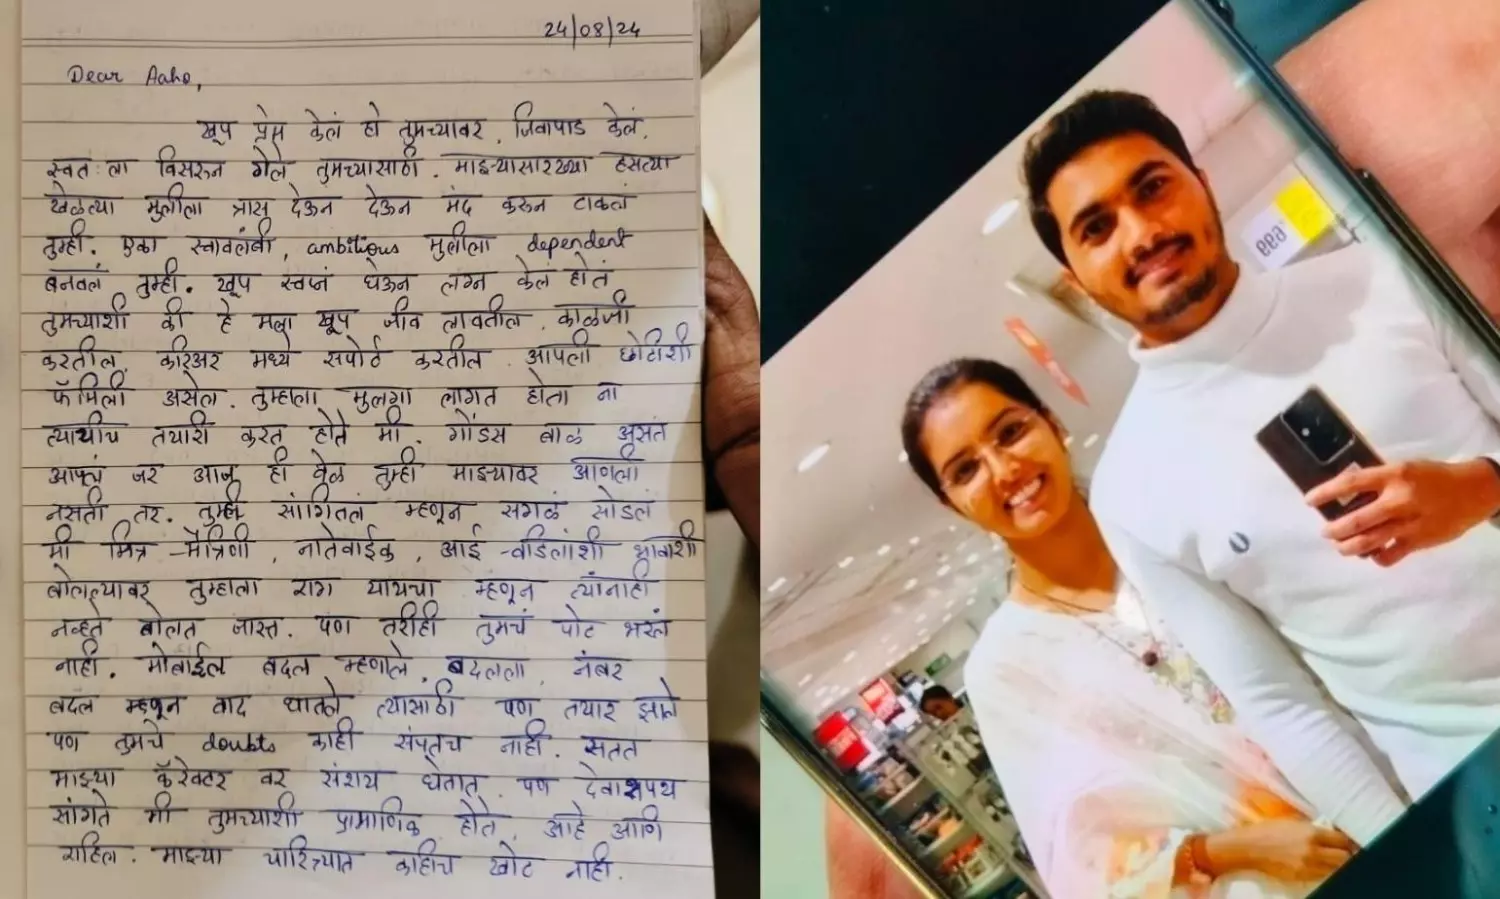 24/08/24
Dear Aaho,
खूप प्रेम केलं हो तुमच्यावर. जिवापाड केलं.
स्वतःला विसरून गेले तुमच्यासाठी. माझ्यासारख्या हसत्या
खेळत्या मुलीला त्रास देऊन देऊन मंद करून टाकलं
तुम्ही. एका स्वावलंबी, ambitious मुलीला dependent
बनवलं तुम्ही. खूप स्वप्नं घेऊन लग्न केलं होतं
तुमच्याशी की हे मला खूप जीव लावतील. काळजी
करतील, करिअर मध्ये सपोर्ट करतील. आपली छोटीशी
फॅमिली असेल. तुम्हाला मुलगा लागत होता ना
त्याचीच तयारी करत होते मी. गोंडस बाळ असतं
आपलं जर आज ही वेळ तुम्ही माझ्यावर आणली
नसती तर. तुम्ही सांगितलं म्हणून सगळं सोडलं
मी मित्र-मैत्रिणी, नातेवाईक, आई-वडिलांशी भावाशी
बोलल्यावर तुम्हाला राग यायचा म्हणून त्यांनाही
नव्हते बोलत जास्त. पण तरीही तुमचं पोट भरलं
नाही. मोबाईल बदल म्हणाले, बदलला, नंबर
बदल म्हणून वाद घातले त्यासाठी पण तयार झाले
पण तुमचे doubts काही संपतच नाही. सतत
माझ्या कॅरेक्टर वर संशय घेतात. पण देवाशपथ
सांगते मी तुमच्याशी प्रामाणिक होते, आहे आणि
राहिल. माझ्या चारित्र्यात काहीच खोट नाही.
699